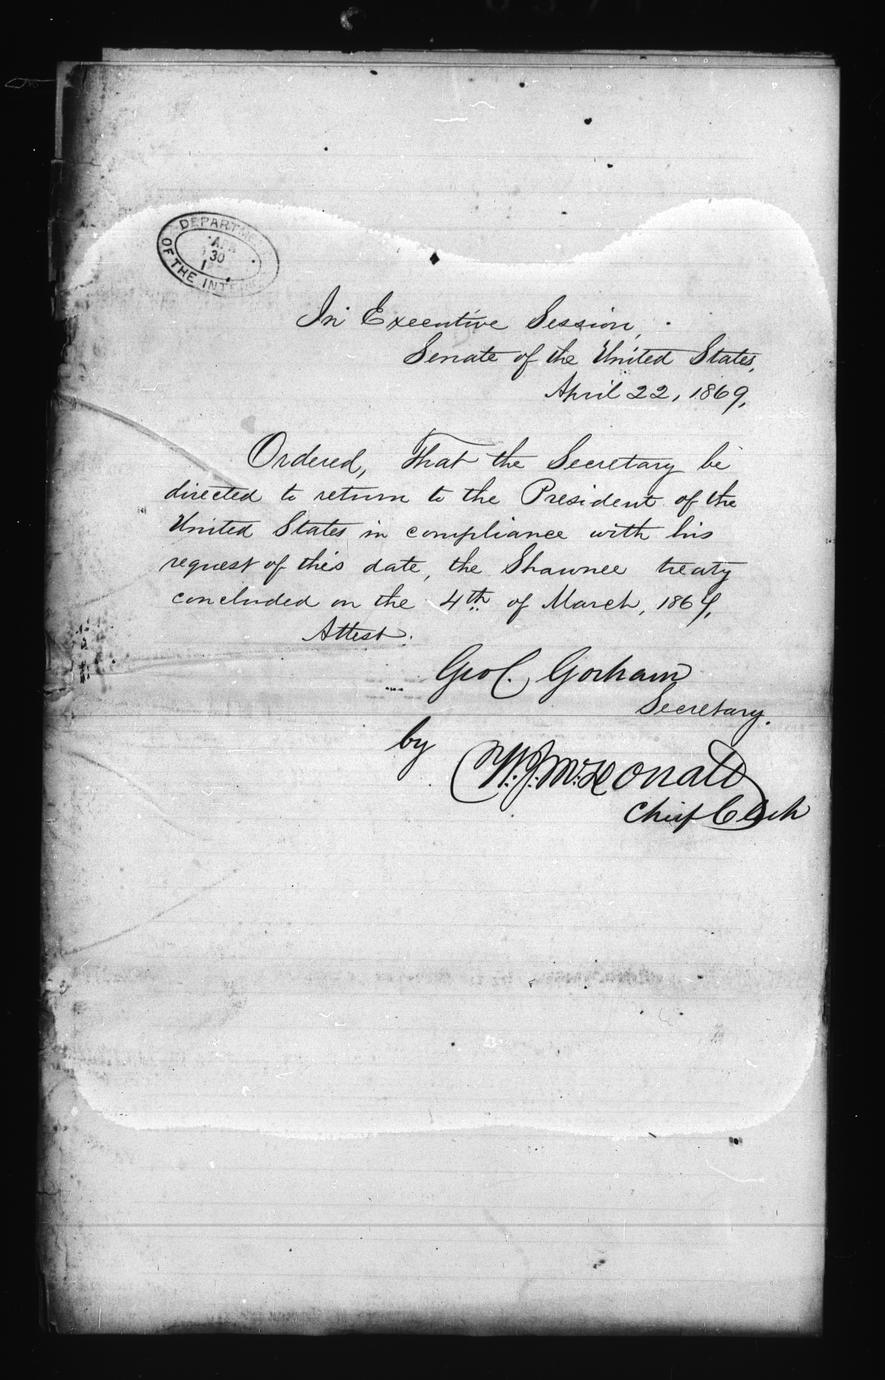 DEPARTMENT
OF THE INTERIOR
APR
30
In Executive Session,
Senate of the United States,
April 22, 1869,
Ordered, That the Secretary be
directed to return to the President of the
United States in compliance with his
request of this date, the Shawnee treaty
concluded on the 4th of March, 1864,
Attest.
Geo C. Gorham
Secretary.
by
W. J. McDonald
Chief Clerk